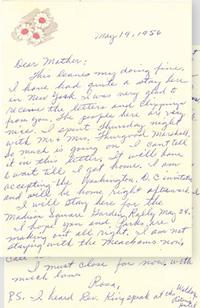 May 19, 1956
Dear Mother:
This leaves my doing fine.
I have had quite a stay here
in New York. I was very glad to
receive the letters and clippings
from you. The people here are very
nice. I spent Thursday night
with Mr + Mrs. Thurgood Marshall.
So much is going on I can't tell
it in this letter. It will have
to wait till I get home. I am
accepting the Washington, D.C. invitation
and will be home right afterward.
I will stay here for the
Madison Square Garden Rally May 24.
I hope you and Parks are
making out all right. I am not
staying with the Meachams now.
I must close for now with
much love
Rosa,
P.S. I heard Rev. King speak at the